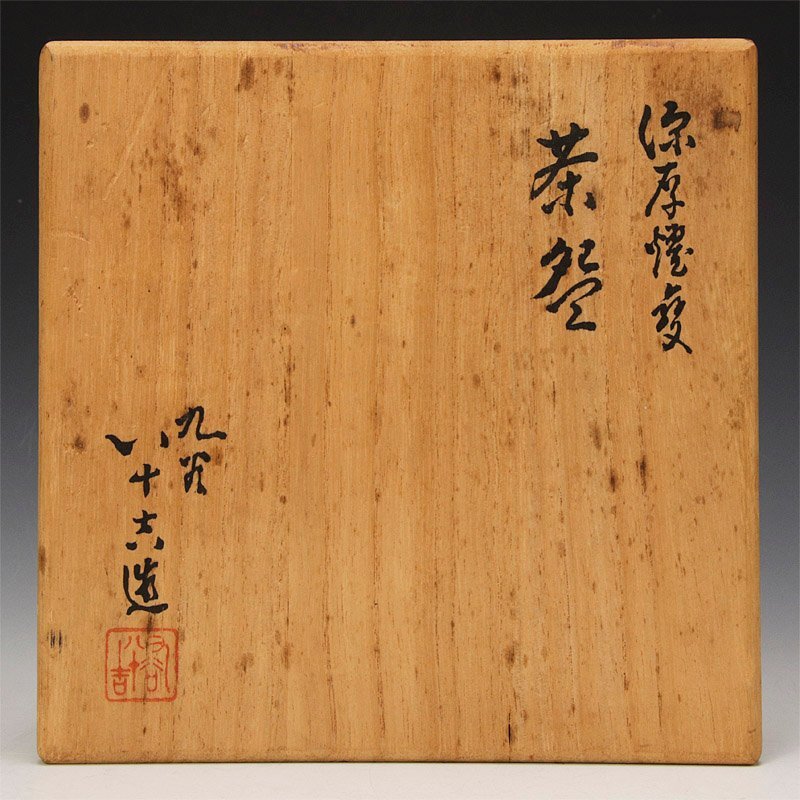 深厚燿変
茶盌
九谷
八十吉造
九谷
八十吉